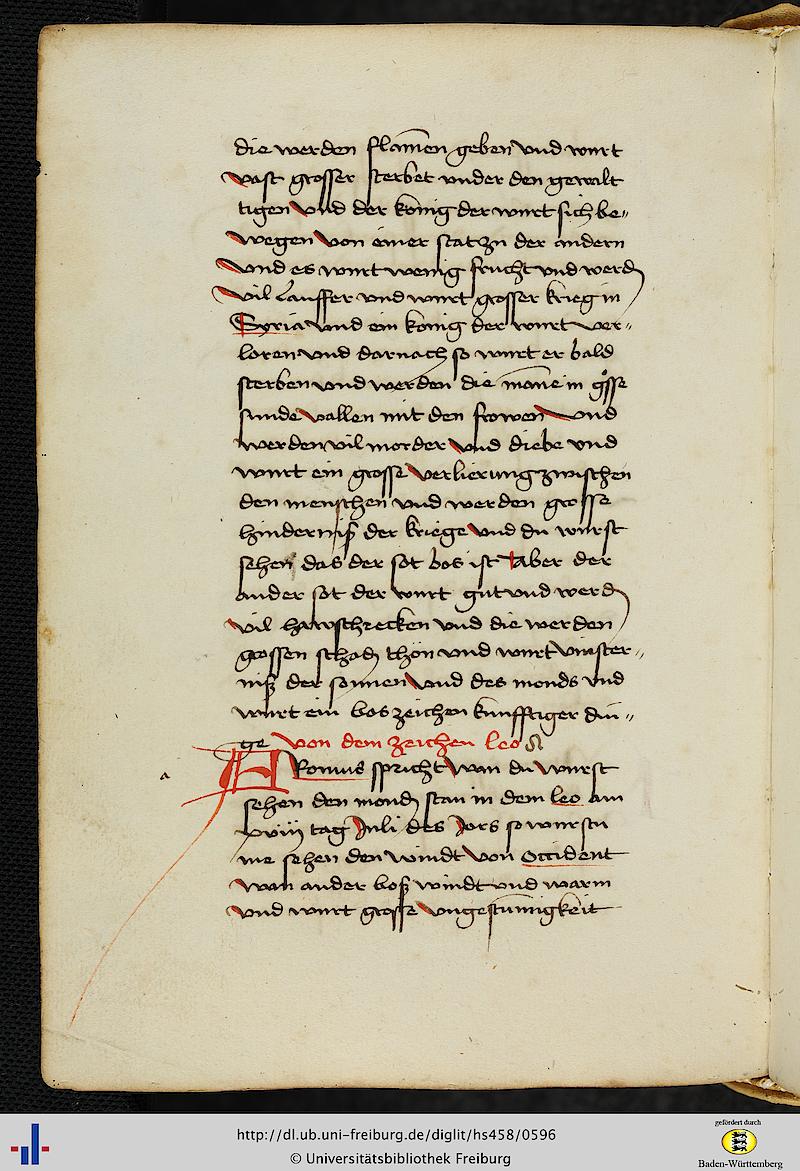 die werden flamen geben vnd wurt
vast grosser sterbet vnder den gewalt
tigen vnd der konig der wurt sich be„
wegen von einer stat zu der andern
vnd es wurt wenig frucht vnd werd
vil lauffer vnd wurt grosser krieg in
Syria vnd ein konig der wurt ver„
loren vnd darnach so wurt er bald
sterben vnd werden die mane in gosse
sunde vallen mit den frowen vnd
werden vil morder vnd diebe vnd
wurt ein grosse verlierung zwischen
den menschen vnd werden grosse
hinderniß der kriege vnd du wurst
sehen das der sot bos ist Aber der
ander sot der wurt gut vnd werd
vil hawschrecken vnd die werden
grossen schad thon vnd wurt vinster„
niß der sonnen vnd des monds vnd
wurt ein bos zeichen kunfftiger din„
ge von dem zeichen leo ♌
a
HRomus spricht wan du wurst
sehen den mond stan in dem leo am
xviij tag Juli des Jors so wurstu
nie sehen den windt von occident
wan ander boß windt vnd warm
vnd wurt grosse vngestumigkeit
http://dl.ub.uni-freiburg.de/diglit/hs458/0596
© Universitätsbibliothek Freiburg
gefördert durch
Baden-Württemberg